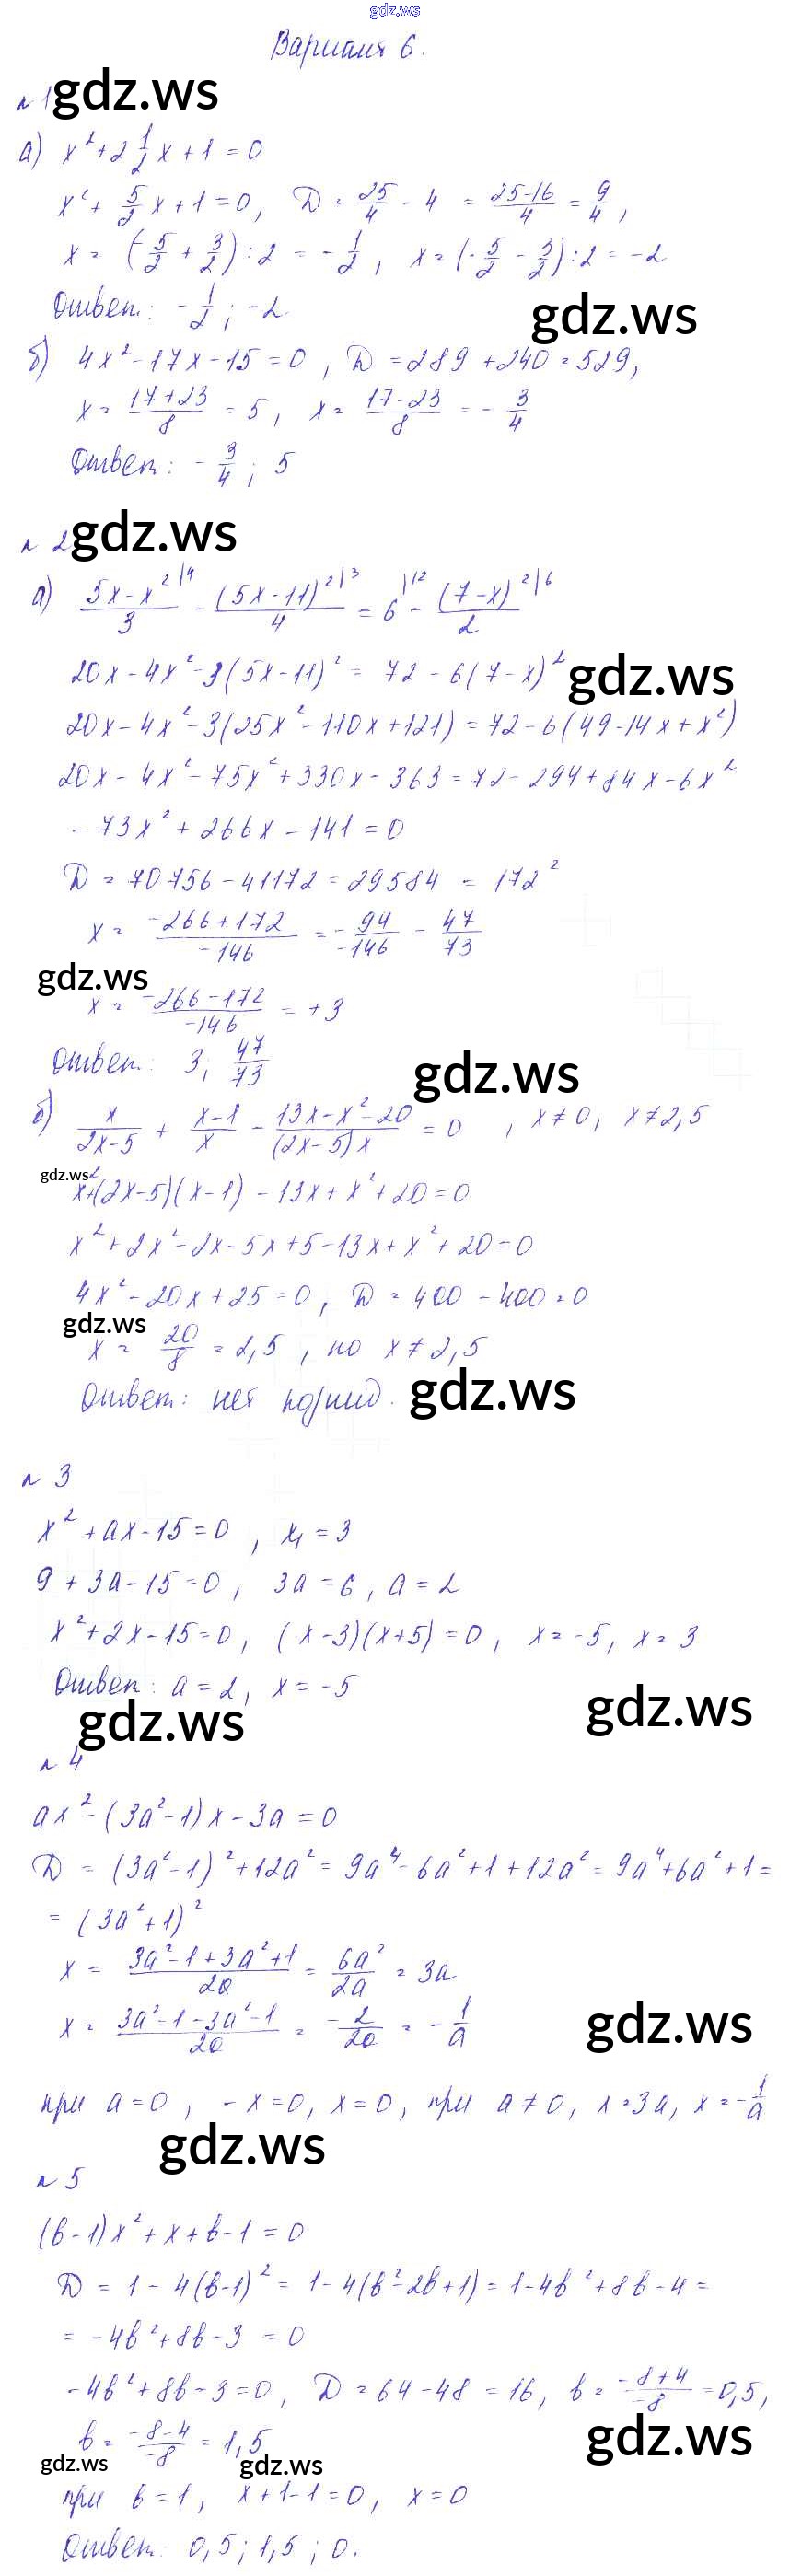 gdz.ws
Вариант 6.
№ 1 gdz.ws
а) x² + 2 1/2 x + 1 = 0
x² + 5/2 x + 1 = 0, D = 25/4 - 4 = (25-16)/4 = 9/4,
x = (-5/2 + 3/2) : 2 = -1/2, x = (-5/2 - 3/2) : 2 = -2
Ответ: -1/2; -2
gdz.ws
б) 4x² - 17x - 15 = 0, D = 289 + 240 = 529,
x = (17+23)/8 = 5, x = (17-23)/8 = -3/4
Ответ: -3/4; 5
№ 2 gdz.ws
а) (5x - x²)/3 |4 - (5x - 11)²/4 |3 = 6 |12 - (7-x)²/2 |6
20x - 4x² - 3(5x - 11)² = 72 - 6(7-x)² gdz.ws
20x - 4x² - 3(25x² - 110x + 121) = 72 - 6(49 - 14x + x²)
20x - 4x² - 75x² + 330x - 363 = 72 - 294 + 84x - 6x²
- 73x² + 266x - 141 = 0
D = 70756 - 41172 = 29584 = 172²
x = (-266 + 172)/-146 = -94/-146 = 47/73
gdz.ws
x = (-266 - 172)/-146 = +3
Ответ: 3; 47/73
gdz.ws
б) x/(2x-5) + (x-1)/x - (13x - x² - 20)/((2x-5)x) = 0, x ≠ 0, x ≠ 2,5
gdz.ws
x² + (2x-5)(x-1) - 13x + x² + 20 = 0
x² + 2x² - 2x - 5x + 5 - 13x + x² + 20 = 0
4x² - 20x + 25 = 0, D = 400 - 400 = 0
gdz.ws
x = 20/8 = 2,5, но x ≠ 2,5
Ответ: нет корней. gdz.ws
№ 3
x² + ax - 15 = 0, x₁ = 3
9 + 3a - 15 = 0, 3a = 6, a = 2
x² + 2x - 15 = 0, (x-3)(x+5) = 0, x = -5, x = 3
Ответ: a = 2, x = -5
gdz.ws gdz.ws
№ 4
ax² - (3a² - 1)x - 3a = 0
D = (3a² - 1)² + 12a² = 9a⁴ - 6a² + 1 + 12a² = 9a⁴ + 6a² + 1 =
= (3a² + 1)²
x = (3a² - 1 + 3a² + 1)/2a = 6a²/2a = 3a
x = (3a² - 1 - 3a² - 1)/2a = -2/2a = -1/a
gdz.ws
при a = 0, -x = 0, x = 0, при a ≠ 0, x = 3a, x = -1/a
gdz.ws
№ 5
(b-1)x² + x + b - 1 = 0
D = 1 - 4(b-1)² = 1 - 4(b² - 2b + 1) = 1 - 4b² + 8b - 4 =
= -4b² + 8b - 3 = 0
-4b² + 8b - 3 = 0, D = 64 - 48 = 16, b = (-8+4)/-8 = 0,5,
gdz.ws
b = (-8-4)/-8 = 1,5
gdz.ws gdz.ws
при b = 1, x + 1 - 1 = 0, x = 0
Ответ: 0,5; 1,5; 0.